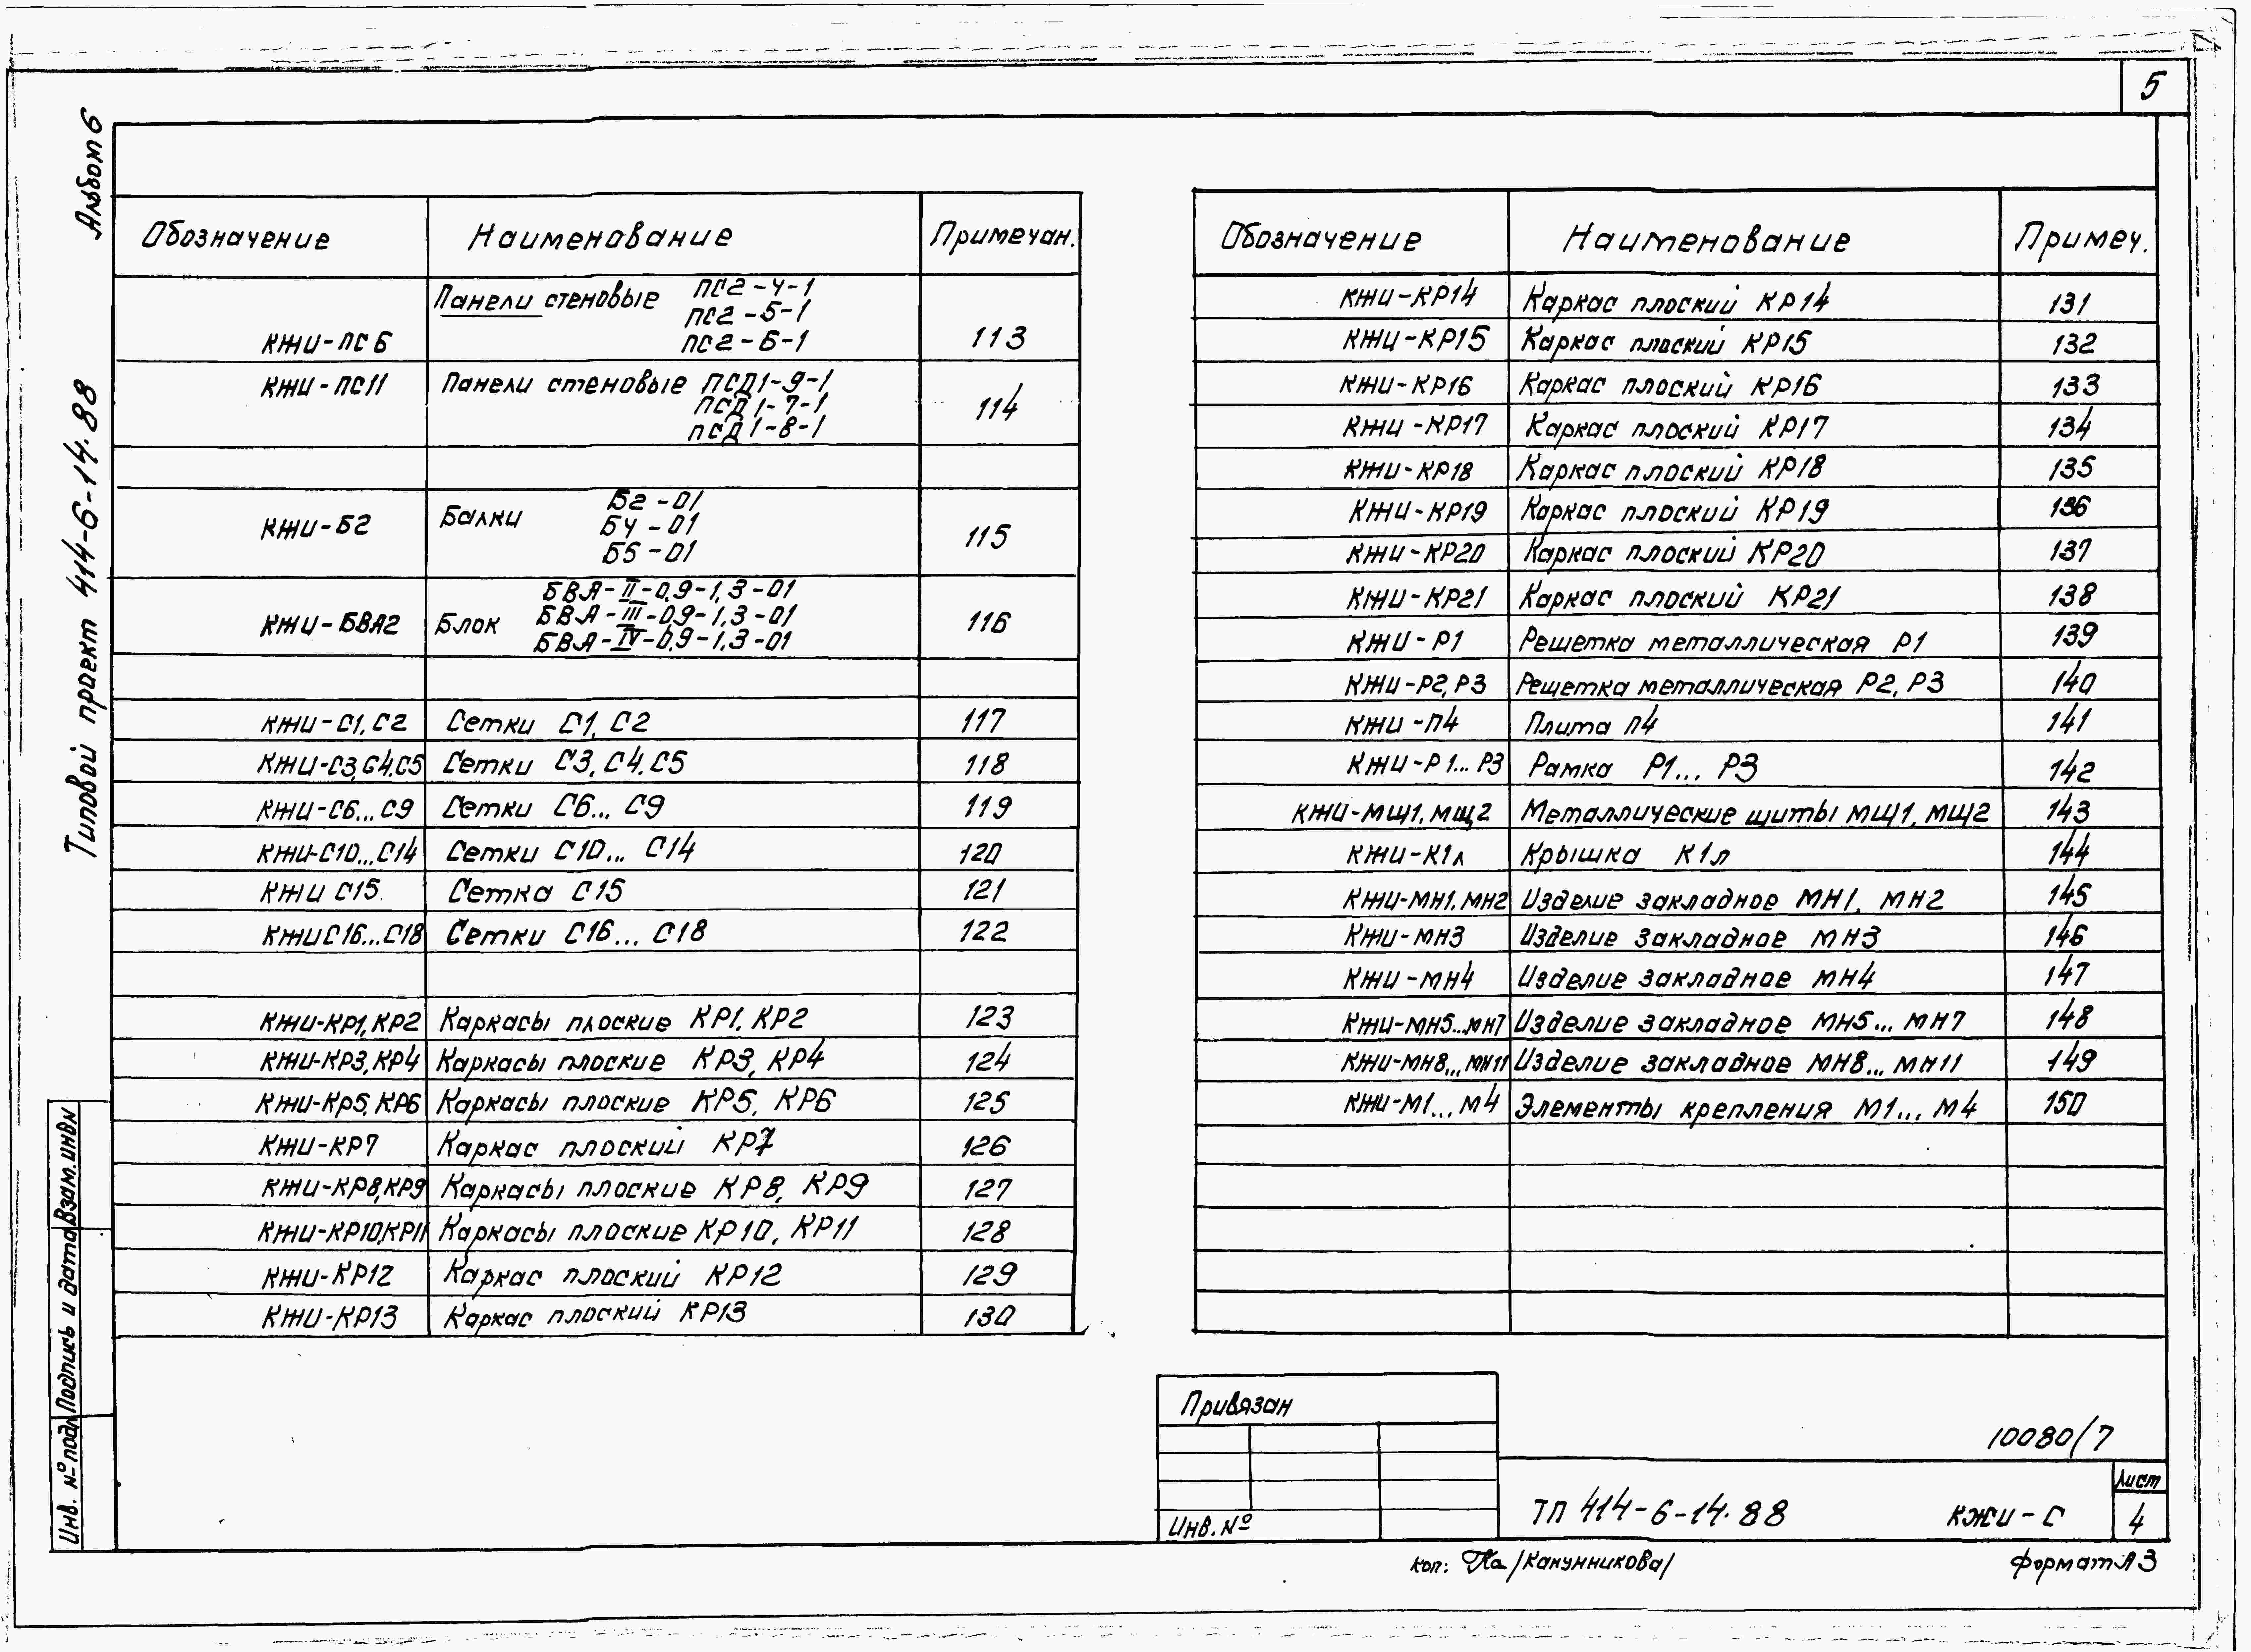 5
Альбом 6
Типовой проект 414-6-14.88
Обозначение Наименование Примечан.
Панели стеновые ПС2-4-1
ПС2-5-1
КЖИ-ПС6 ПС2-6-1 113
КЖИ-ПС11 Панели стеновые ПСД1-9-1
ПСД1-7-1 114
ПСД1-8-1
Б2-01
КЖИ-Б2 Балки Б4-01 115
Б5-01
БВА-II-0,9-1,3-01
КЖИ-БВА2 Блок БВА-III-0,9-1,3-01 116
БВА-IV-0,9-1,3-01
КЖИ-С1, С2 Сетки С1, С2 117
КЖИ-С3, С4, С5 Сетки С3, С4, С5 118
КЖИ-С6...С9 Сетки С6... С9 119
КЖИ-С10...С14 Сетки С10... С14 120
КЖИ С15 Сетка С15 121
КЖИ С16...С18 Сетки С16... С18 122
КЖИ-КР1, КР2 Каркасы плоские КР1, КР2 123
КЖИ-КР3, КР4 Каркасы плоские КР3, КР4 124
КЖИ-КР5, КР6 Каркасы плоские КР5, КР6 125
КЖИ-КР7 Каркас плоский КР7 126
КЖИ-КР8, КР9 Каркасы плоские КР8, КР9 127
КЖИ-КР10, КР11 Каркасы плоские КР10, КР11 128
КЖИ-КР12 Каркас плоский КР12 129
КЖИ-КР13 Каркас плоский КР13 130
Обозначение Наименование Примеч.
КЖИ-КР14 Каркас плоский КР14 131
КЖИ-КР15 Каркас плоский КР15 132
КЖИ-КР16 Каркас плоский КР16 133
КЖИ-КР17 Каркас плоский КР17 134
КЖИ-КР18 Каркас плоский КР18 135
КЖИ-КР19 Каркас плоский КР19 136
КЖИ-КР20 Каркас плоский КР20 137
КЖИ-КР21 Каркас плоский КР21 138
КЖИ-Р1 Решетка металлическая Р1 139
КЖИ-Р2, Р3 Решетка металлическая Р2, Р3 140
КЖИ-П4 Плита П4 141
КЖИ-Р1...Р3 Рамка Р1... Р3 142
КЖИ-МЩ1, МЩ2 Металлические щиты МЩ1, МЩ2 143
КЖИ-К1л Крышка К1л 144
КЖИ-МН1, МН2 Изделие закладное МН1, МН2 145
КЖИ-МН3 Изделие закладное МН3 146
КЖИ-МН4 Изделие закладное МН4 147
КЖИ-МН5...МН7 Изделие закладное МН5... МН7 148
КЖИ-МН8...МН11 Изделие закладное МН8... МН11 149
КЖИ-М1...М4 Элементы крепления М1... М4 150
Инв. № подл. Подпись и дата Взам. инв №
Привязан
Инв. №
10080/7
ТП 414-6-14.88 КЖИ-С
Лист
4
Коп: /Канунникова/
Формат А3